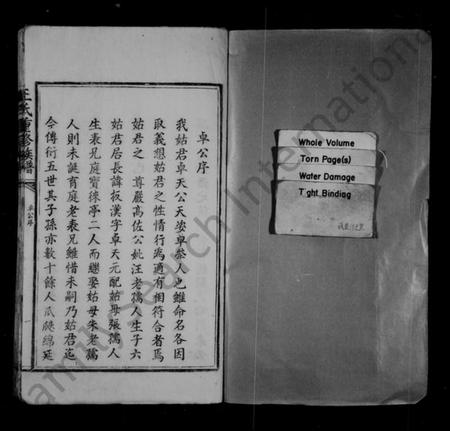 卓公序
我姑君卓天公天姿卓犖人也雖命名各因
取義想姑君之性情行為適有相符合者焉
姑君之 尊嚴高佐公妣汪老孺人生子六
姑君居長諱叔漢字卓天元配姑母張孺人
生表兄庭賓徠亭二人而繼娶姑母朱老孺
人則未誕育庭老表兄雖惜未嗣乃姑君迄
今傳衍五世其子孫亦數十餘人瓜瓞綿延
王氏重修族譜
卓公序
一
Whole Volume
Torn Page(s)
Water Damage
Tight Binding
FamilySearch International